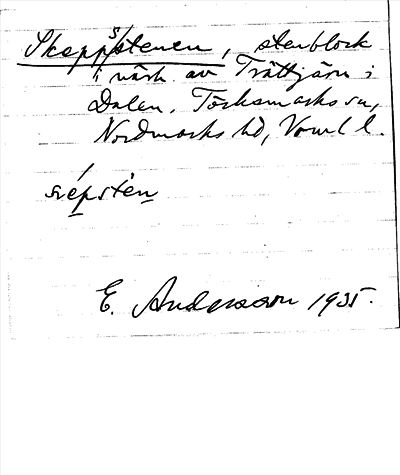 Skeppsstenen, stenblock
i närh. av Trättjärn i
Dalen, Töcksmarks sn,
Nordmarks hd, Vrml l.
E. Andersson 1935.